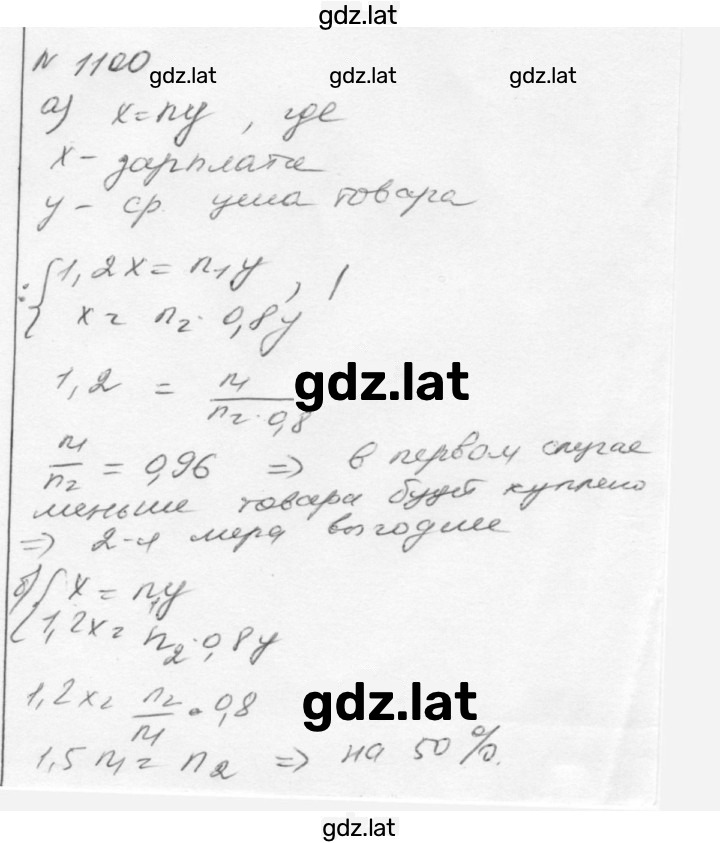 gdz.lat
N 1100
gdz.lat gdz.lat gdz.lat
а) x = ny, где
x - зарплата
y - ср. цена товара
: { 1,2x = n₁y, |
x = n₂ · 0,8y
1,2 = n₁ / (n₂ · 0,8)
gdz.lat
n₁/n₂ = 0,96 => в первом случае
меньше товара будет куплено
=> 2-я мера выгоднее
б) { x = n₁y
1,2x = n₂ · 0,8y
1,2x = n₂/n₁ · 0,8
gdz.lat
1,5 n₁ = n₂ => на 50 %.
gdz.lat